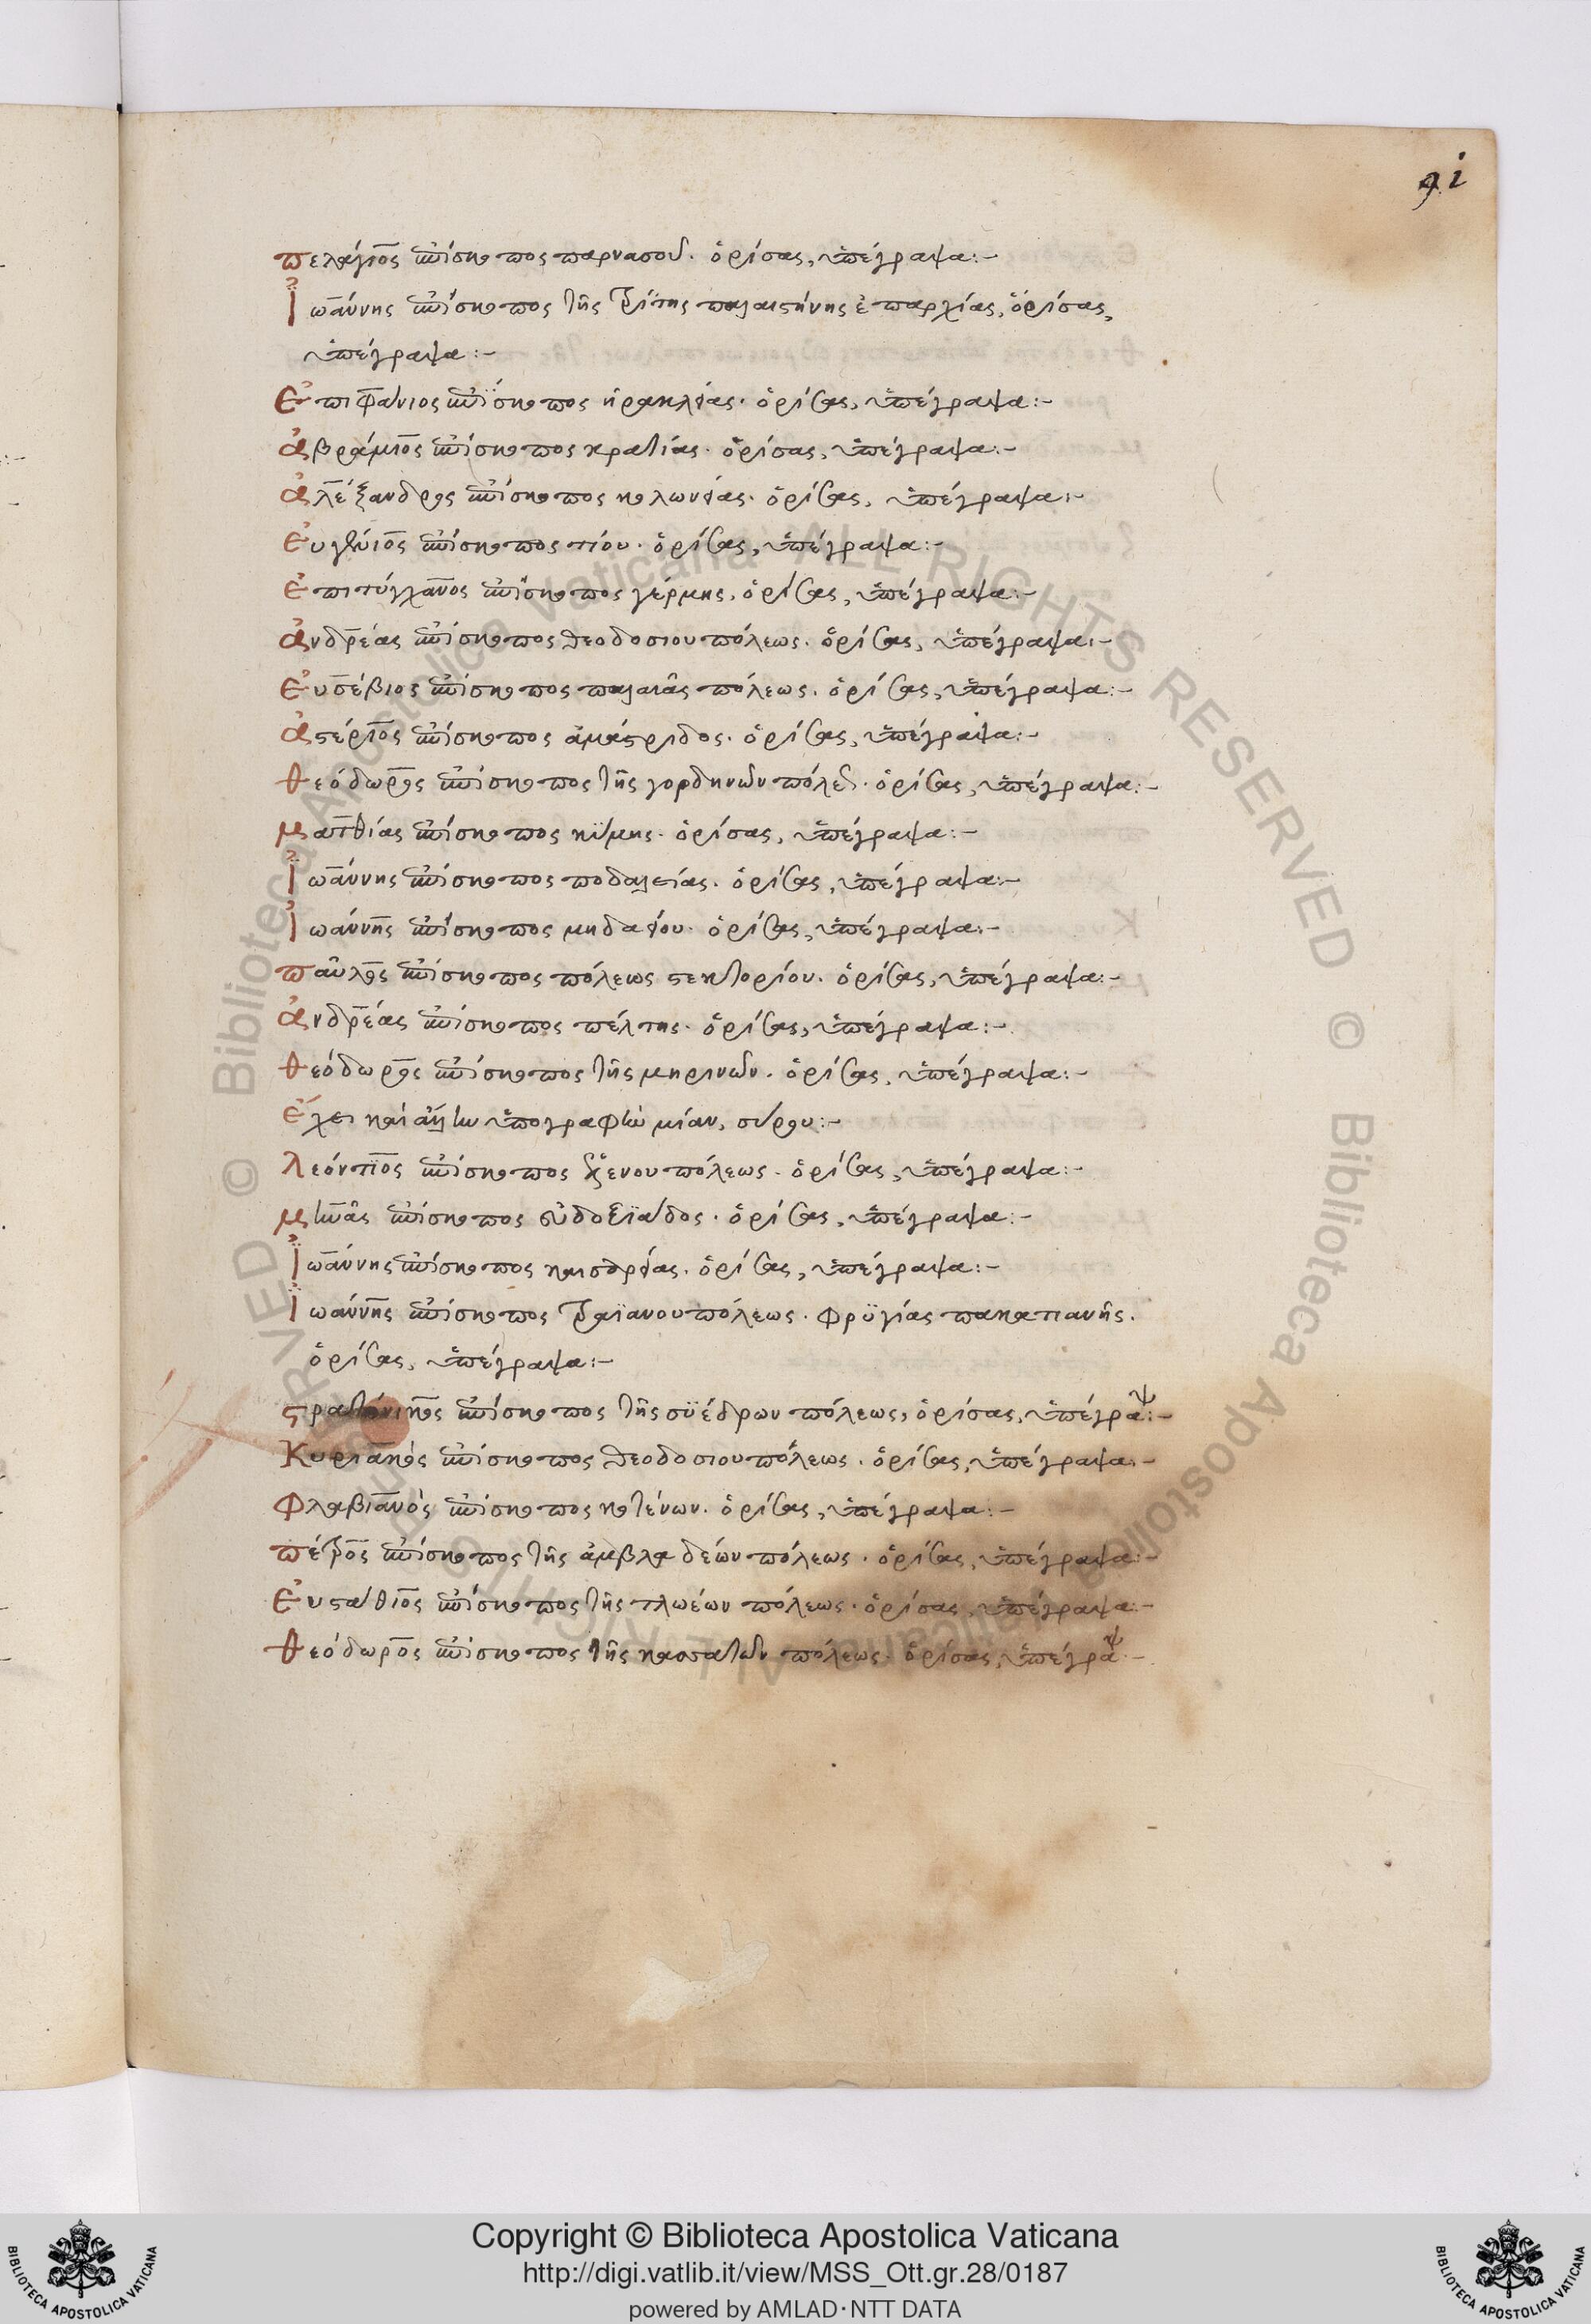 91
πελάγιος ἐπίσκοπος παρνασοῦ. ὁρίσας, ὑπέγραψα:-
Ἰωάννης ἐπίσκοπος τῆς τρίτης παλαιστίνης ἐπαρχίας, ὁρίσας,
ὑπέγραψα:-
Ἐπιφάνιος ἐπίσκοπος ἡρακλείας. ὁρίσας, ὑπέγραψα:-
ἀβράμιος ἐπίσκοπος κρατίας. ὁρίσας, ὑπέγραψα:-
ἀλέξανδρος ἐπίσκοπος κολωνείας. ὁρίσας, ὑπέγραψα:-
Εὐγένιος ἐπίσκοπος τίου. ὁρίσας, ὑπέγραψα:-
Ἐπιτύγχανος ἐπίσκοπος γέρμης. ὁρίσας, ὑπέγραψα:-
ἀνδρέας ἐπίσκοπος θεοδοσιουπόλεως. ὁρίσας, ὑπέγραψα:-
Εὐσέβιος ἐπίσκοπος παλαιᾶς πόλεως. ὁρίσας, ὑπέγραψα:-
ἀστέριος ἐπίσκοπος ἀμάστριδος. ὁρίσας, ὑπέγραψα:-
θεόδωρος ἐπίσκοπος τῆς γορδηνῶν πόλεως. ὁρίσας, ὑπέγραψα:-
ματθίας ἐπίσκοπος κΐμης. ὁρίσας, ὑπέγραψα:-
Ἰωάννης ἐπίσκοπος ποδαλείας. ὁρίσας, ὑπέγραψα:-
Ἰωάννης ἐπίσκοπος μηδαείου. ὁρίσας, ὑπέγραψα:-
παῦλος ἐπίσκοπος πόλεως στεκτορίου. ὁρίσας, ὑπέγραψα:-
ἀνδρέας ἐπίσκοπος πέλτης. ὁρίσας, ὑπέγραψα:-
θεόδωρος ἐπίσκοπος τῆς μηρινῶν. ὁρίσας, ὑπέγραψα:-
Ἔχει καὶ ὑπογραφὴν μίαν, σύρου:-
λεόντιος ἐπίσκοπος ἀξενουπόλεως. ὁρίσας, ὑπέγραψα:-
μηνᾶς ἐπίσκοπος εὐδοξϊάδος. ὁρίσας, ὑπέγραψα:-
Ἰωάννης ἐπίσκοπος καισαρείας. ὁρίσας, ὑπέγραψα:-
Ἰωάννης ἐπίσκοπος τραϊανουπόλεως. φρϋγίας πακατιανῆς.
ὁρίσας, ὑπέγραψα:-
στρατόνικος ἐπίσκοπος τῆς σϋέδρων πόλεως, ὁρίσας, ὑπέγραψ:-
Κυριακὸς ἐπίσκοπος θεοδοσιουπόλεως. ὁρίσας, ὑπέγραψα:-
φλαβιανὸς ἐπίσκοπος κοτένων. ὁρίσας, ὑπέγραψα:-
πέτρος ἐπίσκοπος τῆς ἀμβλαδέων πόλεως. ὁρίσας, ὑπέγραψα:-
Εὐστάθιος ἐπίσκοπος τῆς τλωέων πόλεως. ὁρίσας, ὑπέγραψα:-
θεόδωρος ἐπίσκοπος τῆς κασατῶν πόλεως. ὁρίσας, ὑπέγραψ:-
Copyright © Biblioteca Apostolica Vaticana
http://digi.vatlib.it/view/MSS_Ott.gr.28/0187
powered by AMLAD·NTT DATA